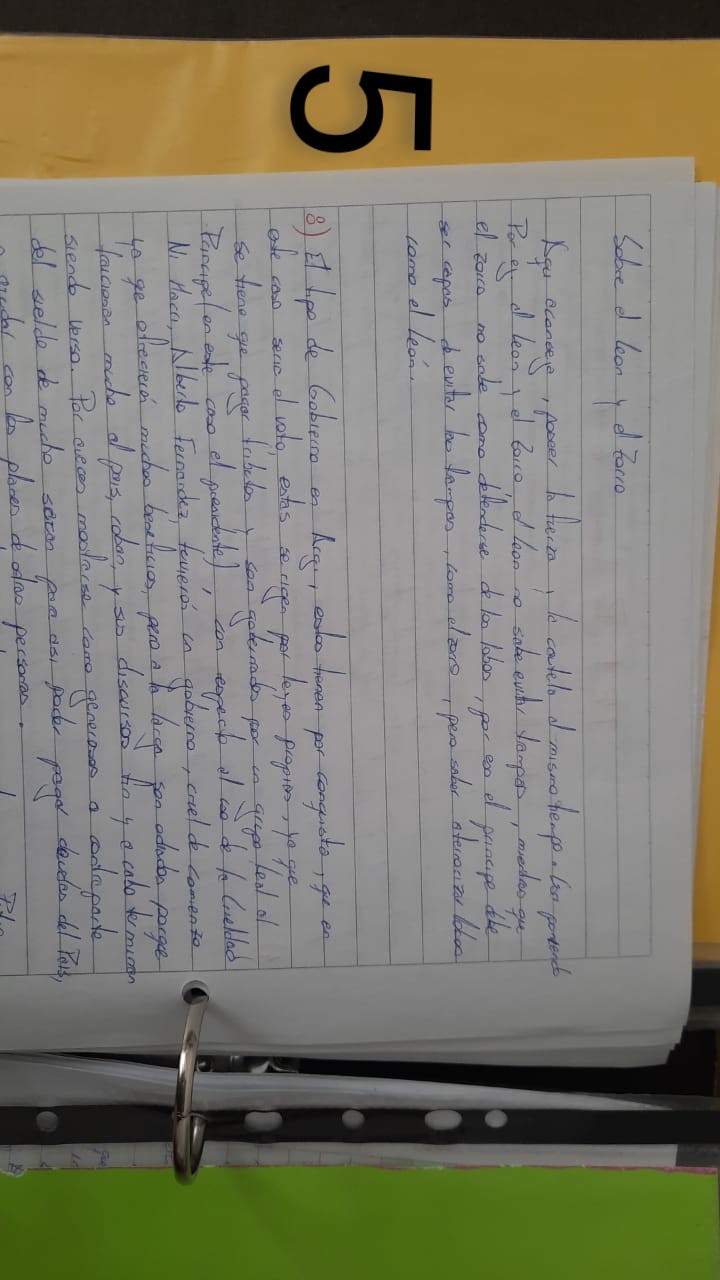 5
Sobre el leon y el zorro
Aqui aconseja, poseer la fuerza y la cautela al mismo tiempo. Usa poniendo
Por ej el leon y el zorro, el leon no sabe evitar trampas, mientras que
el zorro no sabe como defenderse de los lobos, por eso el principe debe
ser capas de evitar las trampas, como el zorro, pero saber aterrorizar lobos
como el león.
8) El tipo de Gobierno en Arg, estos tienen por conquista, que en
este caso seria el voto, estas se rigen por leyes propias, ya que
se tiene que pagar tributos y son gobernados por un grupo leal al
Principe (en este caso el presidente), con respecto al uso de la Crueldad
N. Macri, Alberto Fernandez, tuvieron un gobierno, cruel de comienzo
ya que ofrecieron muchos beneficios, pero a la larga son odiados porque
traicionan mucho al pais, roban y sus discursos fin y a cabo terminan
siendo verso. Por creces mostrarse como generosos a contraparte
del sueldo de mucho para asi poder pagar deudas del Pais,
con los placeres de otras personas.